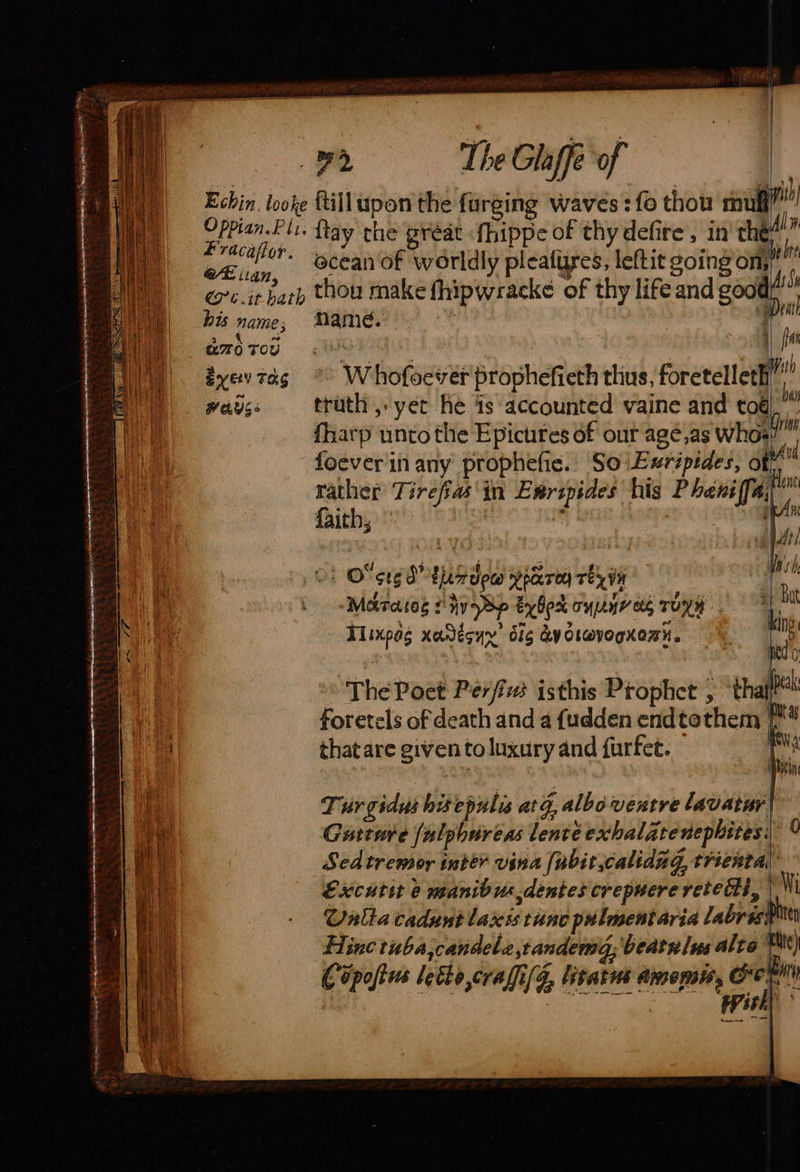 72 The Glaſſe of
Echin. looke
Oppian. Pli.
Fracaſtor.
Æ lian,
&c. it hath
his name,
ἀπὸ τοῦ
ἔχειν τὰς
ναῦς.
ſtill upon the ſurging waves: ſo thou muſt
ſtay the great ſhippe of thy deſire, in the
ocean of worldly pleaſures, leſt it going on,
thou make ſhipwracke of thy life and good
name.
Whoſoever propheſieth thus, foretelleth
truth, yet he is accounted vaine and too
ſharp unto the Epicures of our age, as whoſ-
ſoever in any propheſie. So Euripides, or
rather Tireſias in Euripides his Phæniſſa
faith,
Ὅστις δ' ἐμπύρῳ χρῆται τέχνῃ
Μάταιος· ἢν μὲν ἐχθρὰ σημήνας τύχῃ
Πικρὸς καθέστηχ' οἷς ἂν οἰωνοσκοπῇ.
The Poet Perſius is this Prophet, that
foretels of death and a ſudden end to them
that are given to luxury and ſurfet.
Turgidus his epulis atq; albo ventre lavatur
Gutture ſulphureas lentè exhalante mephites:
Sed tremor inter vina ſubit, calidúq; trienta
Excutit è manibus, dentes crepuere retecti,
Uncta cadunt laxis tunc pulmentaria labris
Hinc tuba, candelæ, tandemq; beatulus alto
Cōpoſitus lecto, craſſiſq; litatus amomis, &c.
With